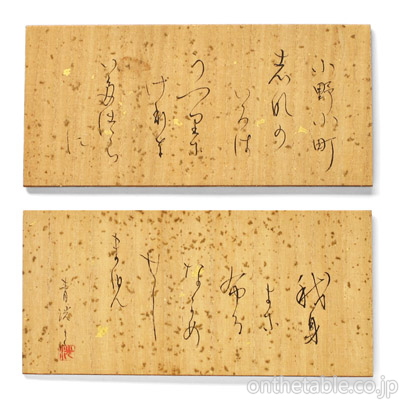 小野小町
はなの
いろは
うつりに
けりな
いたつら
に
我身
よに
布る
なかめ
せし
onthetable.co.jp